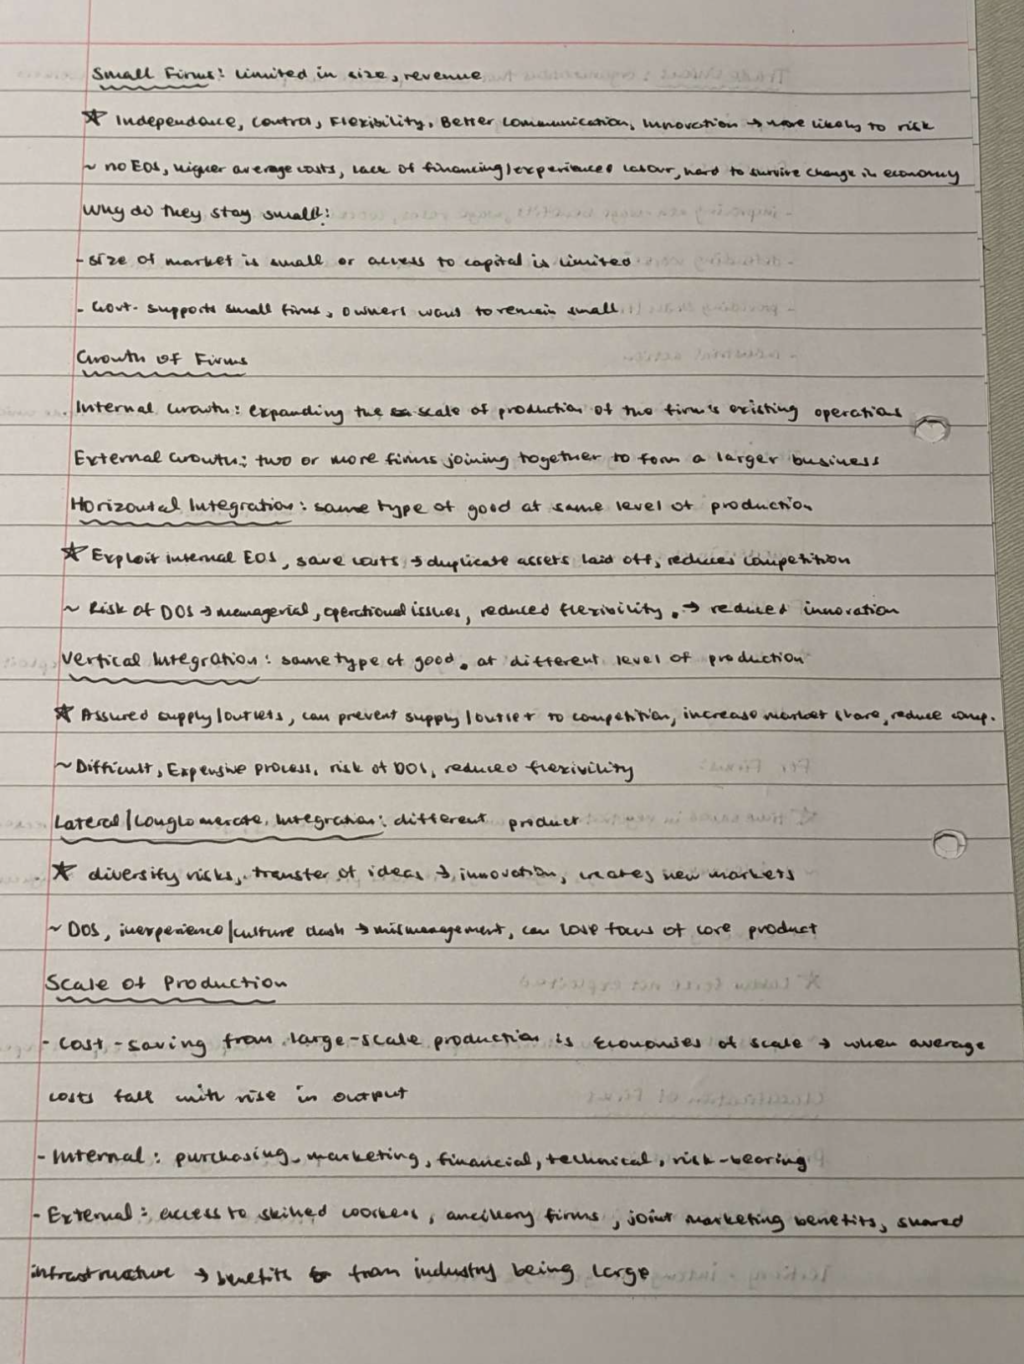 Small Firms: limited in size, revenue
☆ Independance, control, Flexibility, Better communication, innovation → more likely to risk
~ no EOS, higher average costs, lack of financing/experienced labour, hard to survive change in economy
Why do they stay small?:
- size of market is small or access to capital is limited
- Govt. supports small firms, owners want to remain small
Growth of Firms
Internal Growth: expanding the scale of production of the firm's existing operations
External Growth: two or more firms joining together to form a larger business
Horizontal Integration: same type of good at same level of production
☆ Exploit internal EOS, save costs → duplicate assets laid off, reduces competition
~ Risk of DOS → managerial, operational issues, reduced flexibility. → reduced innovation
Vertical Integration: same type of good. at different level of production
☆ Assured supply/outlets, can prevent supply/outlet to competition, increase market share, reduce comp.
~ Difficult, Expensive process, risk of DOS, reduced flexivility
Lateral/Conglomerate Integration: different product
☆ diversify risks, transfer of ideas → innovation, creates new markets
~ DOS, inexperience/culture clash → mismanagement, can lose focus of core product
Scale of Production
- Cost-saving from large-scale production is Economies of scale → when average
costs fall with rise in output
- Internal: purchasing, marketing, financial, technical, risk-bearing
- External: access to skilled workers, ancillary firms, joint marketing benefits, shared
infrastructure → benefits from industry being large